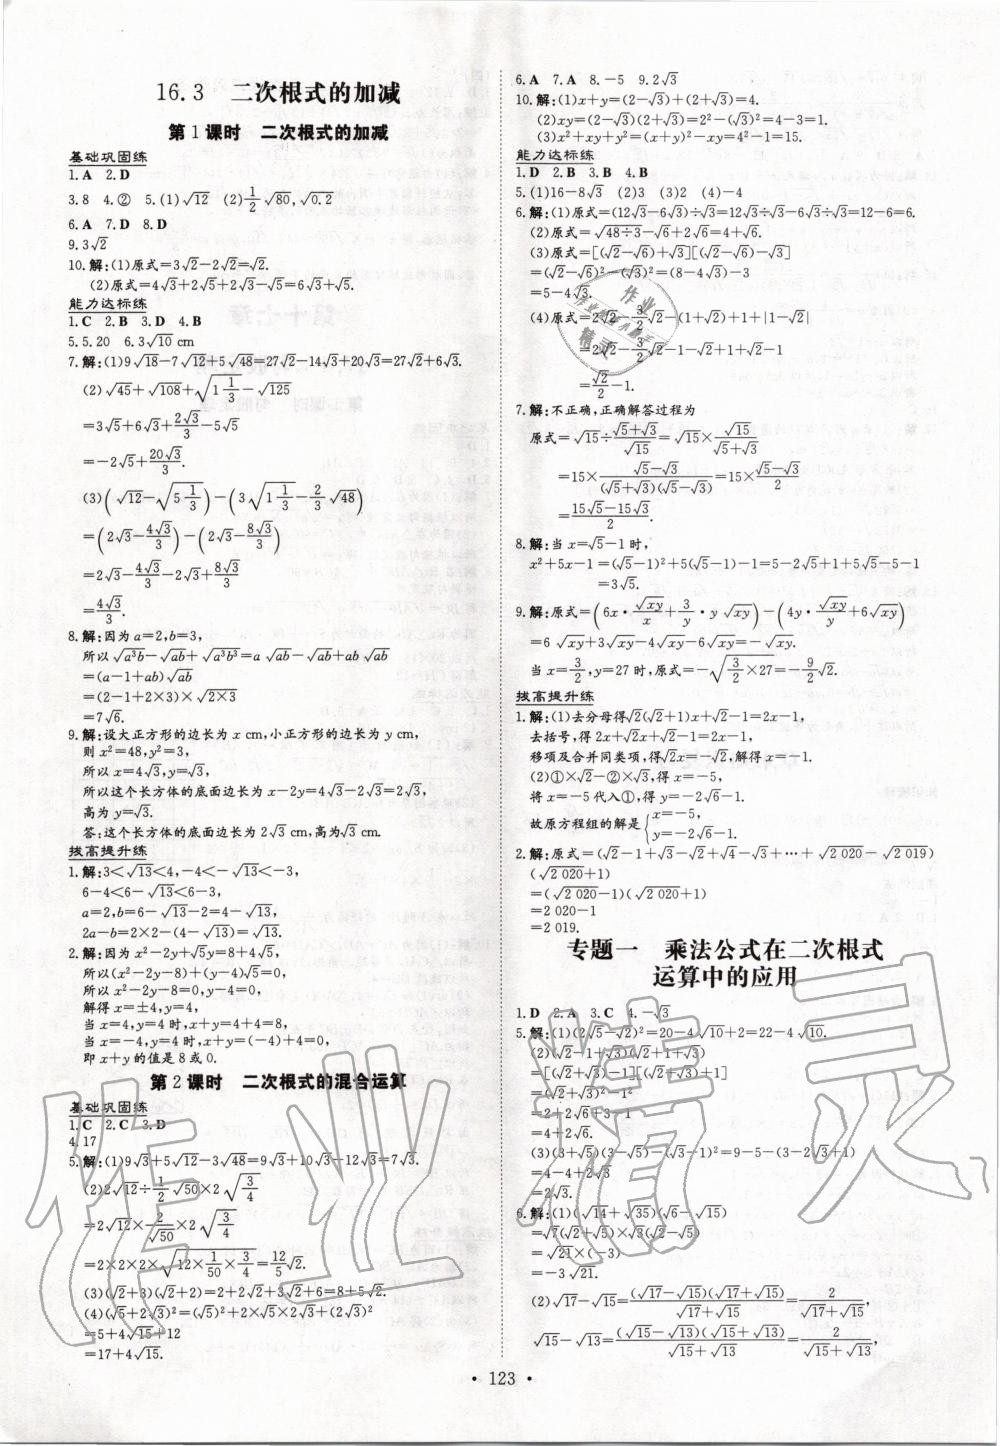 16.3 二次根式的加减
第1课时 二次根式的加减
基础巩固练
1.A 2.D
3.8 4.② 5.(1)√12 (2)1/2√80,√0.2
6.A 7.D 8.D
9.3√2
10.解:(1)原式=3√2-2√2=√2.
(2)原式=4√3+2√5+2√3-√5=6√3+√5.
能力达标练
1.C 2.B 3.D 4.B
5.5.20 6.3√10 cm
7.解:(1)9√18-7√12+5√48=27√2-14√3+20√3=27√2+6√3.
(2)√45+√108+√(1 1/3)-√125
=3√5+6√3+2√3/3-5√5
=-2√5+20√3/3.
(3)(√12-√(5 1/3))-(3√(1 1/3)-2/3√48)
=(2√3-4√3/3)-(2√3-8√3/3)
=2√3-4√3/3-2√3+8√3/3
=4√3/3.
8.解:因为a=2,b=3,
所以√(a³b)-√(ab)+√(a³b³)=a√(ab)-√(ab)+ab√(ab)
=(a-1+ab)√(ab)
=(2-1+2×3)×√(2×3)
=7√6.
9.解:设大正方形的边长为x cm,小正方形的边长为y cm,
则x²=48,y²=3,
所以x=4√3,y=√3,
所以这个长方体的底面边长为x-2y=4√3-2√3=2√3,
高为y=√3.
答:这个长方体的底面边长为2√3 cm,高为√3 cm.
拔高提升练
1.解:3<√13<4,-4<-√13<-3,
6-4<6-√13<6-3,
a=2,b=6-√13-2=4-√13,
2a-b=2×2-(4-√13)=√13.
2.解:因为x²-2y+√5y=8+4√5,
所以(x²-2y-8)+(y-4)√5=0,
所以x²-2y-8=0,y-4=0,
解得x=±4,y=4,
当x=4,y=4时,x+y=4+4=8;
当x=-4,y=4时,x+y=(-4)+4=0,
即x+y的值是8或0.
第2课时 二次根式的混合运算
基础巩固练
1.C 2.C 3.D
4.17
5.解:(1)9√3+5√12-3√48=9√3+10√3-12√3=7√3.
(2)2√12÷1/2√50×2√(3/4)
=2√12×2/√50×2√(3/4)
=2×2×2×√(12×1/50×3/4)=12/5√2.
(3)(√2+3)(√2+2)=2+2√2+3√2+6=8+5√2.
(4)(√5+2√3)²=(√5)²+2×√5×2√3+(2√3)²
=5+4√15+12
=17+4√15.
6.A 7.A 8.-5 9.2√3
10.解:(1)x+y=(2-√3)+(2+√3)=4.
(2)xy=(2-√3)(2+√3)=2²-(√3)²=4-3=1.
(3)x²+xy+y²=(x+y)²-xy=4²-1=15.
能力达标练
1.D 2.B 3.B 4.B
5.(1)16-8√3 (2)3 (3)2 (4)-4
6.解:(1)原式=(12√3-6√3)÷√3=12√3÷√3-6√3÷√3=12-6=6.
(2)原式=√(48÷3)-√6+2√6=4+√6.
(3)原式=[(√2-√6)+√3][(√2-√6)-√3]
=(√2-√6)²-(√3)²=(8-4√3)-3
=5-4√3.
(4)原式=2√2-3/2√2-(1+√2)+1+|1-√2|
=2√2-3/2√2-1-√2+1+√2-1
=√2/2-1.
7.解:不正确,正确解答过程为
原式=√15÷(√5+√3)/√15=√15×√15/(√5+√3)
=15×(√5-√3)/((√5+√3)(√5-√3))=15×(√5-√3)/2
=(15√5-15√3)/2.
8.解:当x=√5-1时,
x²+5x-1=(√5-1)²+5(√5-1)-1=5-2√5+1+5√5-5-1
=3√5.
9.解:原式=(6x·√(xy)/x+3/y·y√(xy))-(4y·√(xy)/y+6√(xy))
=6√(xy)+3√(xy)-4√(xy)-6√(xy)=-√(xy).
当x=3/2,y=27时,原式=-√(3/2×27)=-9/2√2.
拔高提升练
1.解:(1)去分母得√2(√2+1)x+√2-1=2x-1,
去括号,得2x+√2x+√2-1=2x-1,
移项及合并同类项,得√2x=-√2,解得x=-1.
(2)①×√2-②×√3,得x=-5,
将x=-5代入①,得y=-2√6-1.
故原方程组的解是{x=-5, y=-2√6-1.
2.解:原式=(√2-1+√3-√2+√4-√3+…+√2 020-√2 019)
(√2 020+1)
=(√2 020-1)(√2 020+1)
=2 020-1
=2 019.
专题一 乘法公式在二次根式
运算中的应用
1.D 2.A 3.C 4.-√3
5.解:(1)(2√5-√2)²=20-4√10+2=22-4√10.
(2)(√2-1+√3)(√2+1+√3)
=[(√2+√3)-1][(√2+√3)+1]
=(√2+√3)²-1
=2+2√6+3-1
=4+2√6.
(3)(3+√5)(3-√5)-(√3-1)²=9-5-(3-2√3+1)
=4-4+2√3
=2√3.
6.解:(1)(√14+√35)(√6-√15)
=√7(√2+√5)×√3(√2-√5)
=√21×(-3)
=-3√21.
(2)√17-√15=(√17-√15)(√17+√15)/(√17+√15)=2/(√17+√15),
√15-√13=(√15-√13)(√15+√13)/(√15+√13)=2/(√15+√13),
·123·
作业精灵